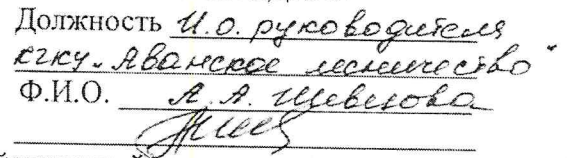 Должность И.о. руководителя
КГКУ "Аванское лесничество"
Ф.И.О. А.А. Шевцова